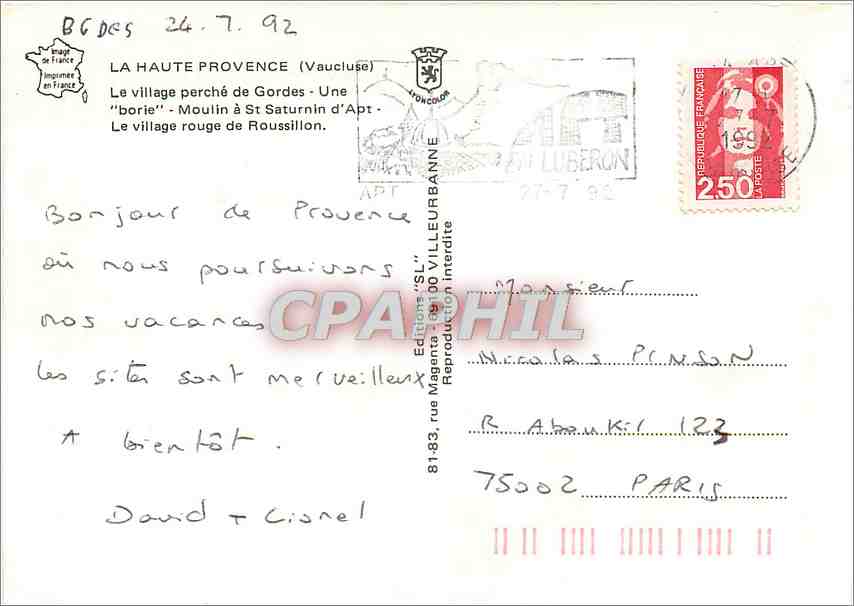 24.7.92
Image
de France
Imprimée
en France
LA HAUTE PROVENCE (Vaucluse)
Le village perché de Gordes - Une
"borie" - Moulin à St Saturnin d'Apt -
Le village rouge de Roussillon.
LYONCOLOR
EN LUBERON
APT
27-7 92
RÉPUBLIQUE FRANÇAISE
2,50
LA POSTE
1992
Bonjour de Provence
où nous poursuivons
nos vacances
les sites sont merveilleux
A bientôt.
David + Lionel
Editions "SL"
81-83, rue Magenta - 69100 VILLEURBANNE
Reproduction interdite
CPAPHIL
Monsieur
Nicolas PINSON
R Aboukir 123
75002 PARIS